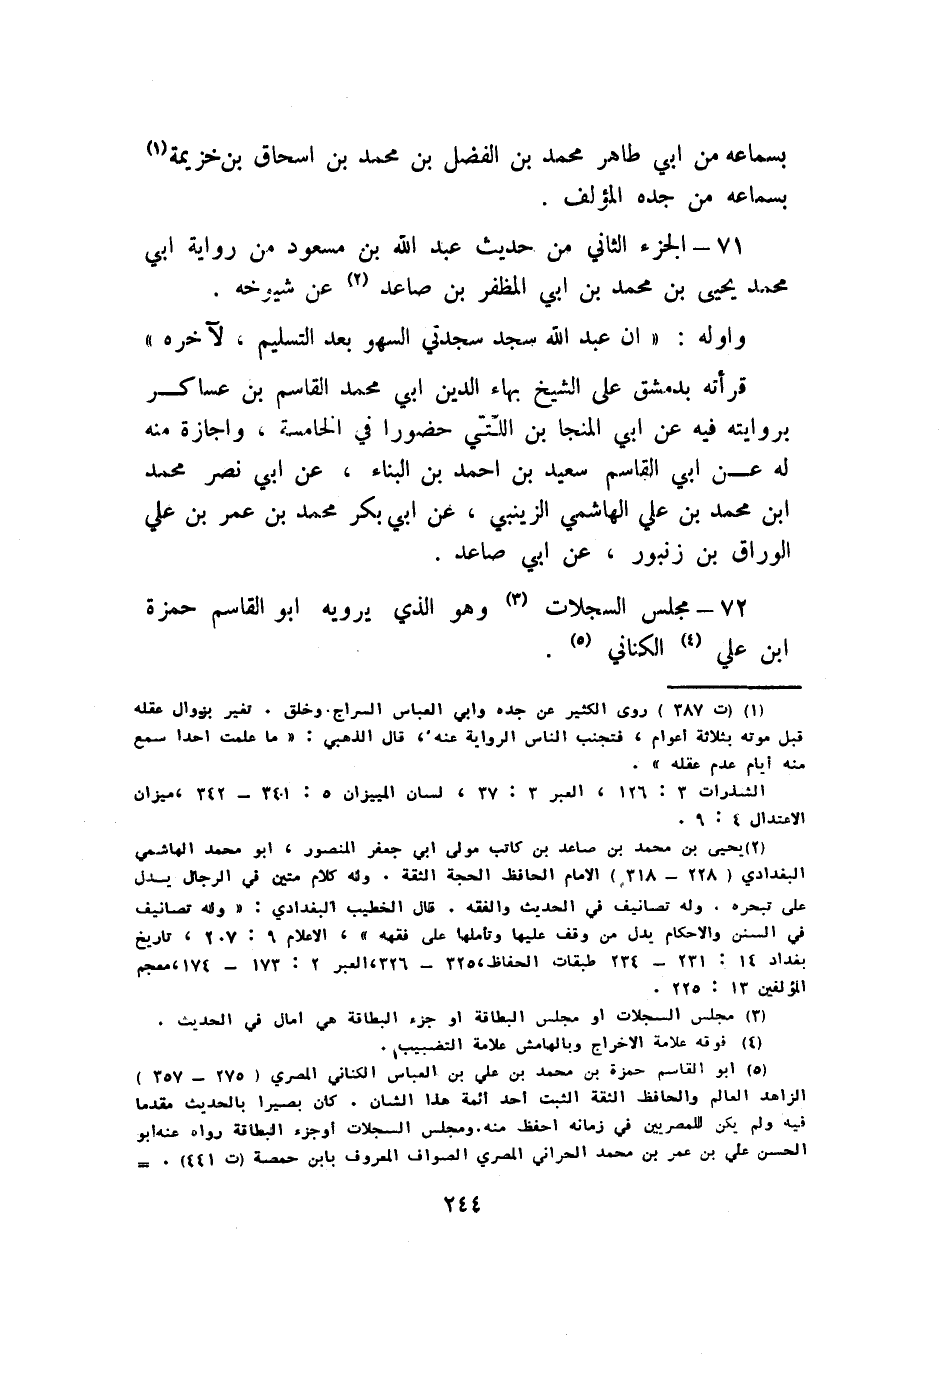 بسماعه من ابي طاهر محمد بن الفضل بن محمد بن اسحاق بن خزيمة(١)
بسماعه من جده المؤلف .
٧١ – الجزء الثاني من حديث عبد الله بن مسعود من رواية ابي
محمد يحيى بن محمد بن ابي المظفر بن صاعد (٢) عن شيوخه .
واوله : « ان عبد الله سجد سجدتي السهو بعد التسليم ، لآخره »
قرأته بدمشق على الشيخ بهاء الدين ابي محمد القاسم بن عساكر
بروايته فيه عن ابي المنجا بن اللتّي حضورا في الخامسة ، واجازة منه
له عن ابي القاسم سعيد بن احمد بن البناء ، عن ابي نصر محمد
ابن محمد بن علي الهاشمي الزينبي ، عن ابي بكر محمد بن عمر بن علي
الوراق بن زنبور ، عن ابي صاعد .
٧٢ – مجلس السجلات (٣) وهو الذي يرويه ابو القاسم حمزة
ابن علي (٤) الكناني (٥) .
(١) (ت ٣٨٧ ) روى الكثير عن جده وابي العباس السراج.وخلق . تغير بزوال عقله
قبل موته بثلاثة أعوام ، فتجنب الناس الرواية عنه ، قال الذهبي : « ما علمت احدا سمع
منه أيام عدم عقله » .
الشذرات ٣ : ١٢٦ ، العبر ٣ : ٣٧ ، لسان الميزان ٥ : ٣٤١ – ٣٤٢ ،ميزان
الاعتدال ٤ : ٩ .
(٢)يحيى بن محمد بن صاعد بن كاتب مولى ابي جعفر المنصور ، ابو محمد الهاشمي
البغدادي ( ٢٢٨ – ٣١٨ ) الامام الحافظ الحجة الثقة . وله كلام متين في الرجال يدل
على تبحره . وله تصانيف في الحديث والفقه . قال الخطيب البغدادي : « وله تصانيف
في السنن والاحكام يدل من وقف عليها وتأملها على فقهه » ، الاعلام ٩ : ٢٠٧ ، تاريخ
بغداد ١٤ : ٢٣١ – ٢٣٤ طبقات الحفاظ،٣٢٥ – ٣٢٦،العبر ٢ : ١٧٣ – ١٧٤،معجم
المؤلفين ١٣ : ٢٢٥ .
(٣) مجلس السجلات او مجلس البطاقة او جزء البطاقة هي امال في الحديث .
(٤) فوقه علامة الاخراج وبالهامش علامة التضبيب .
(٥) ابو القاسم حمزة بن محمد بن علي بن العباس الكناني المصري ( ٢٧٥ – ٣٥٧ )
الزاهد العالم والحافظ الثقة الثبت احد أئمة هذا الشان . كان بصيرا بالحديث مقدما
فيه ولم يكن للمصريين في زمانه احفظ منه.ومجلس السجلات أوجزء البطاقة رواه عنه ابو
الحسن علي بن عمر بن محمد الحراني المصري الصواف المعروف بابن حمصة (ت ٤٤١) . =
٢٤٤